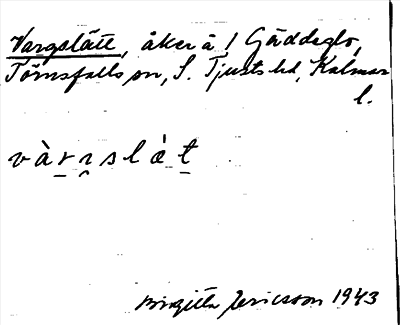 Vargslätt, åker å 1 Gäddeglo,
Törnsfalls sn, S. Tjusts hd, Kalmar
l.
v à r ɿ s l á t
Birgitta Jericsson 1943